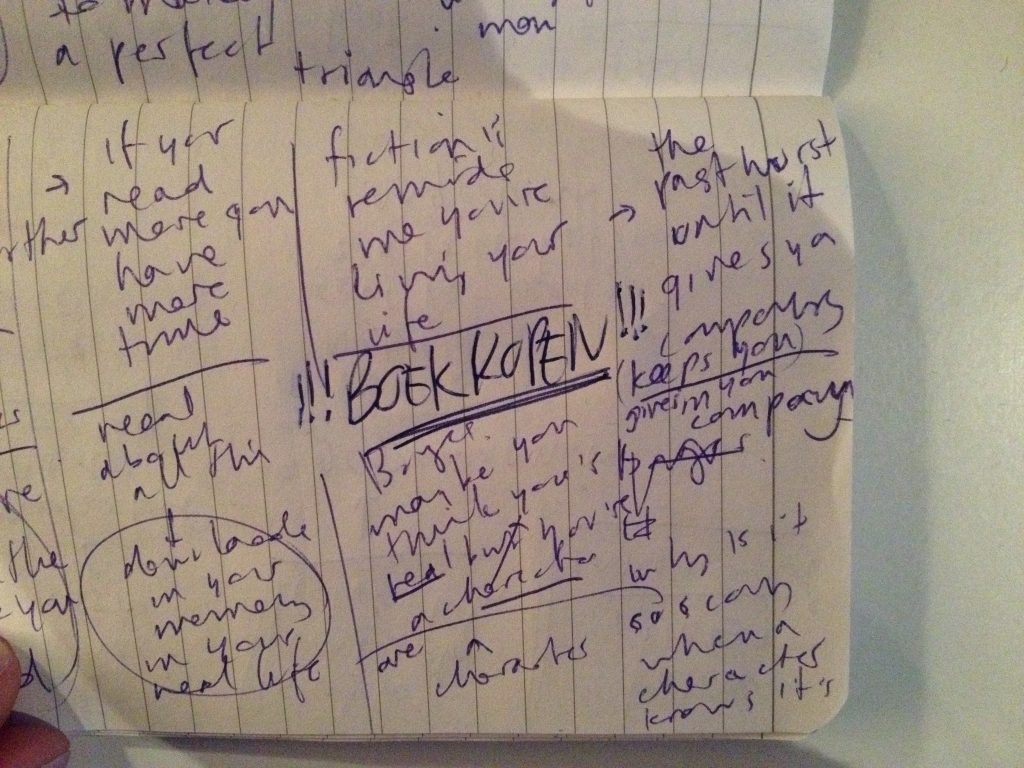 to make
a perfect
man
triangle
→ If you
read
more you
have
more
time
read
about
all this
+
downloade
in your
memory
in your
real life
fiction is
reminde
me you're
living your
life
!!! BOEK KOPEN !!!
Borges.
maybe you
think you's
real but you're
a character
are a
character
→ the
past worst
until it
gives ya
company
(keeps you)
gives in you
company
why is it
so scary
when a
character
knows it's
the
you